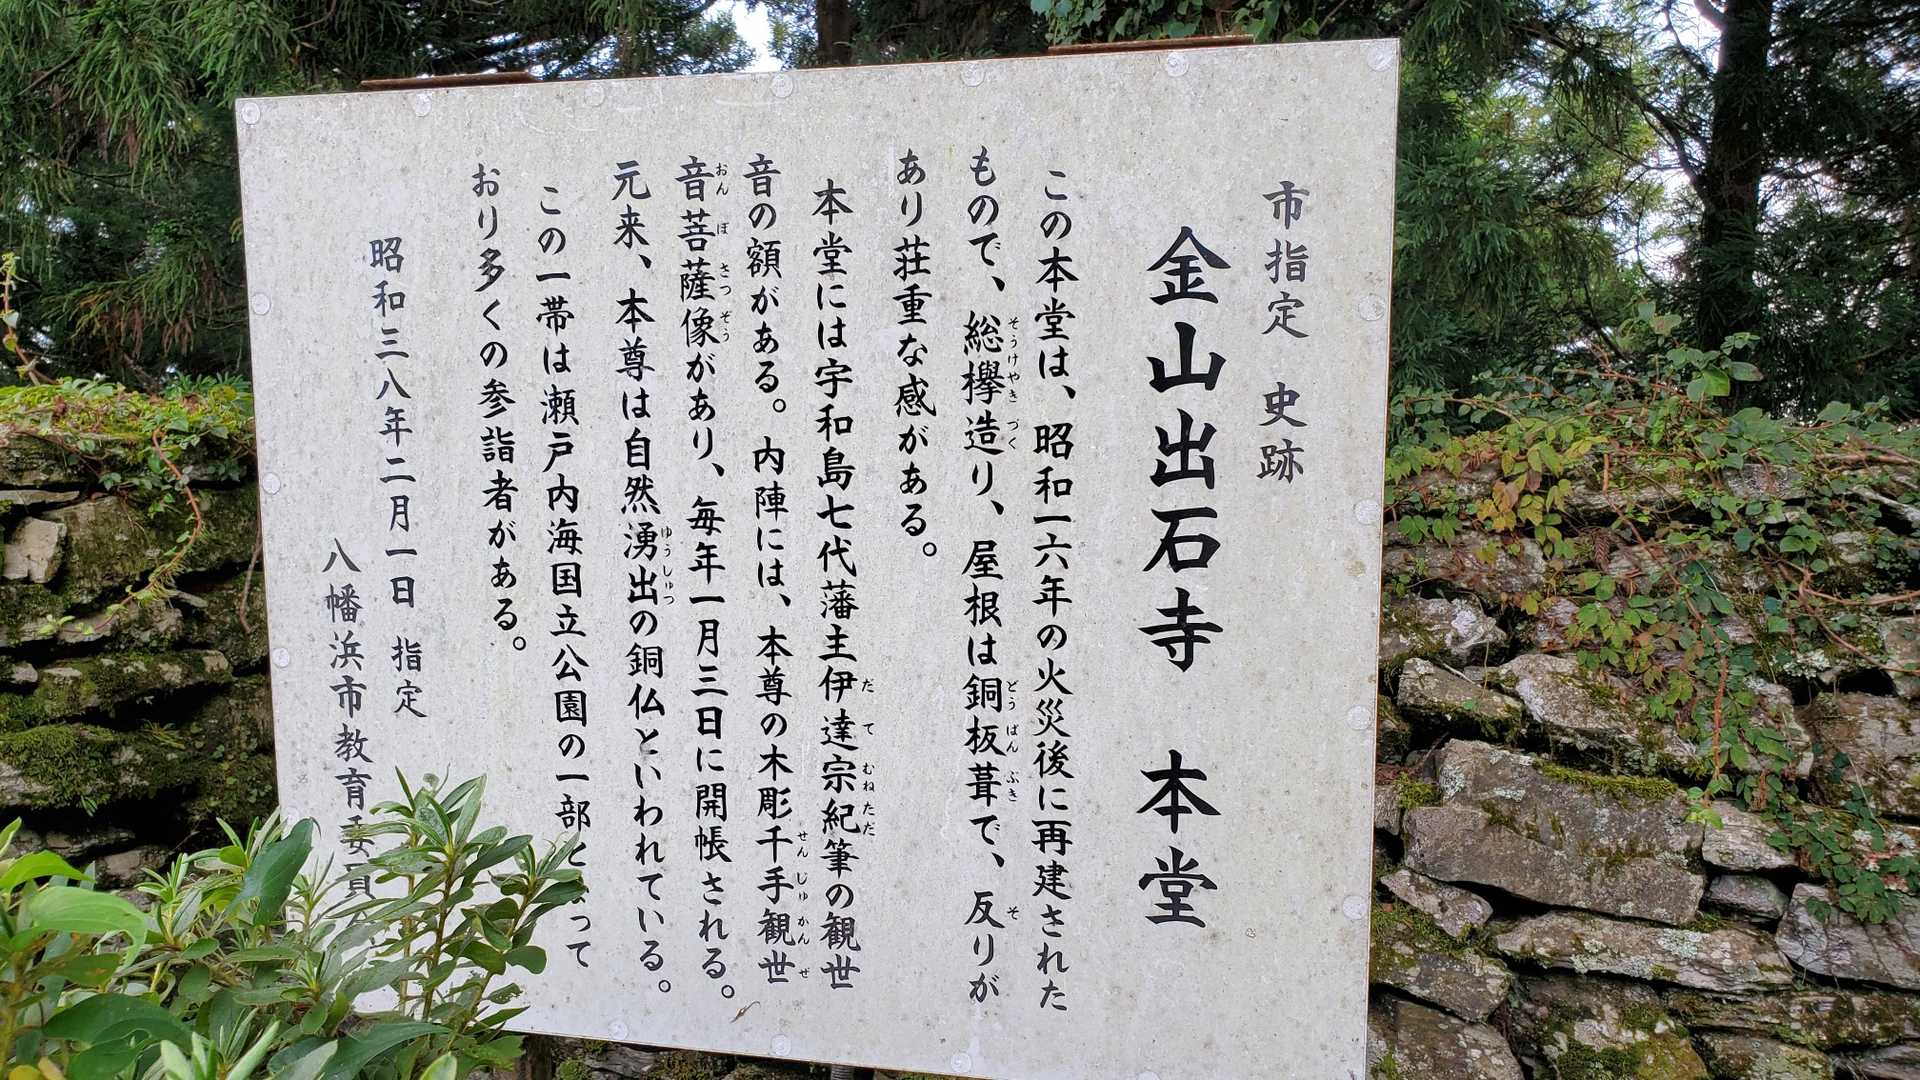 市指定　史跡
金山出石寺　本堂
この本堂は、昭和一六年の火災後に再建された
もので、総欅造り、屋根は銅板葺で、反りが
そうけやきづく
どうばんぶき
そ
あり荘重な感がある。
本堂には宇和島七代藩主伊達宗紀筆の観世
だてむねただ
音の額がある。内陣には、本尊の木彫千手観世
せんじゅかんぜ
音菩薩像があり、毎年一月三日に開帳される。
おんぼさつぞう
元来、本尊は自然湧出の銅仏といわれている。
ゆうしゅつ
この一帯は瀬戸内海国立公園の一部と
って
おり多くの参詣者がある。
昭和三八年二月一日　指定
八幡浜市教育委員